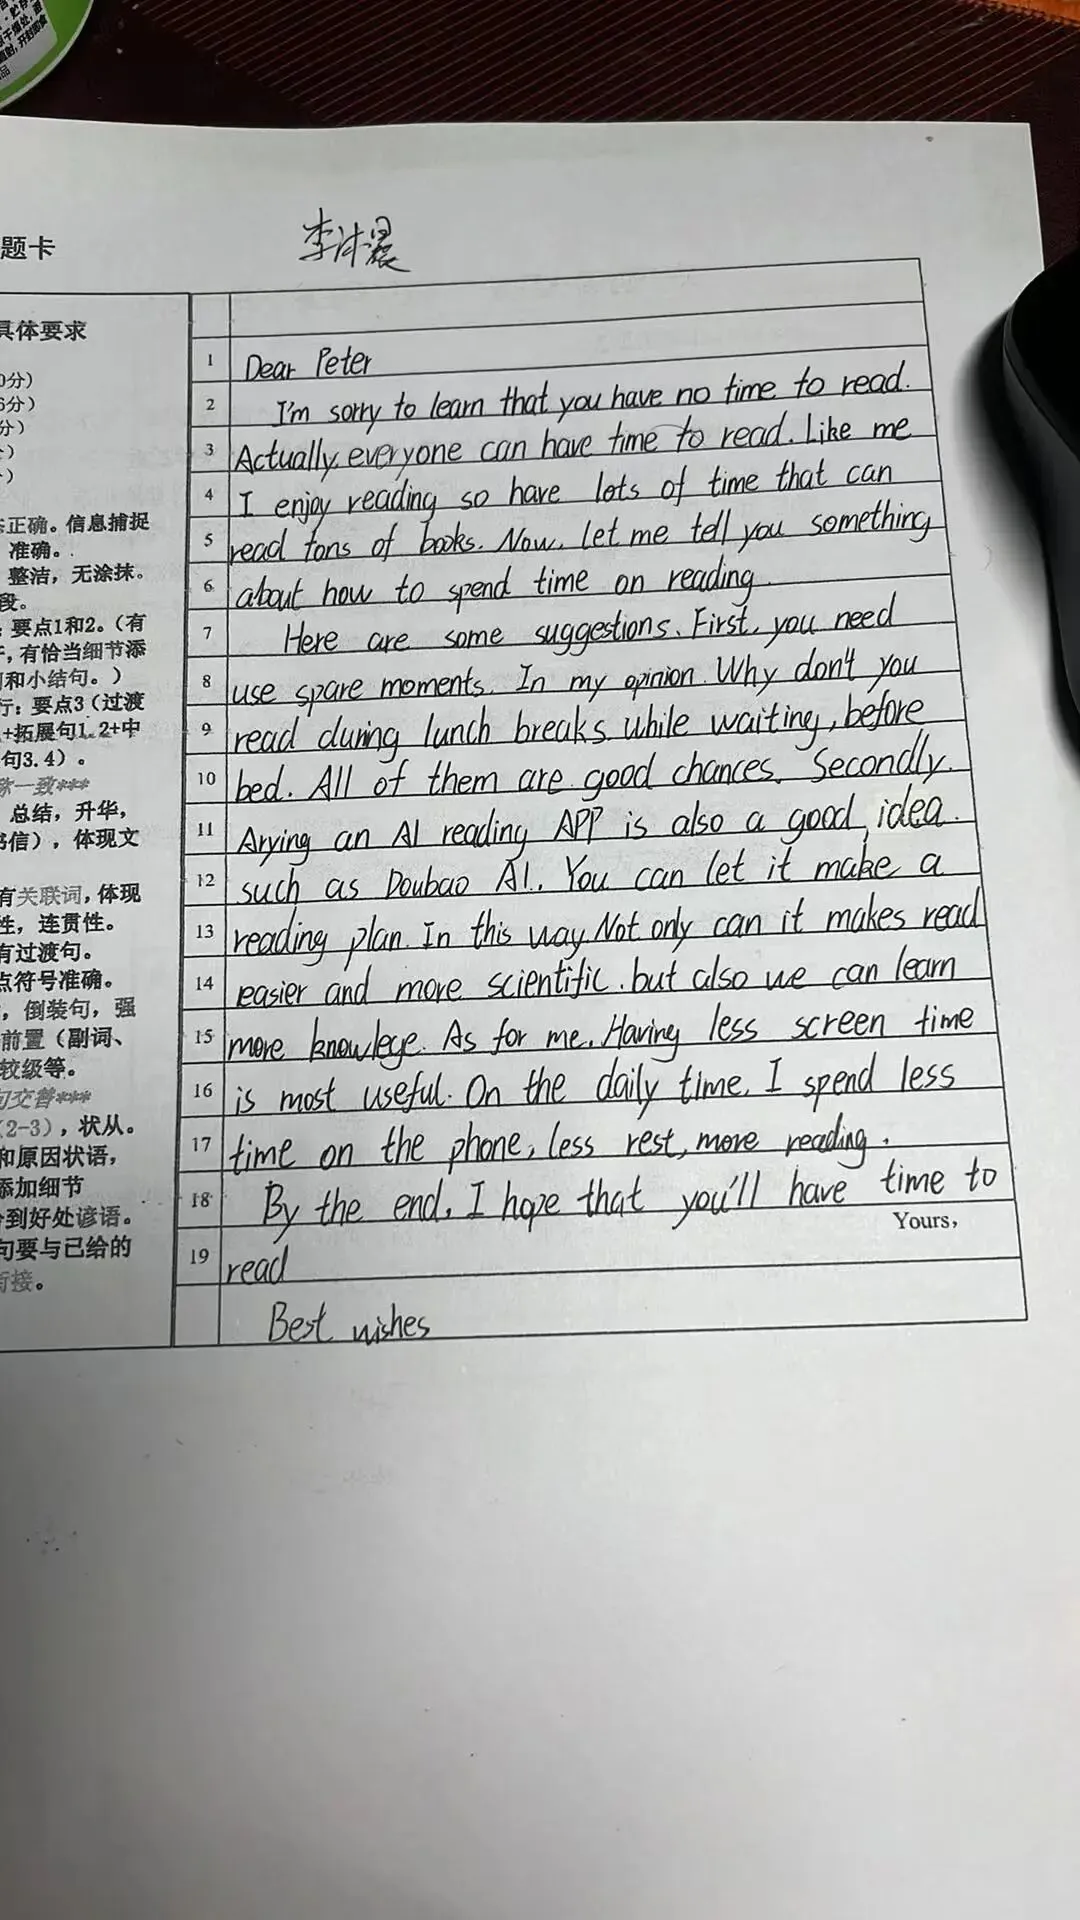 题卡
李沐晨
具体要求
0分)
6分)
分)
正确。信息捕捉
准确。
整洁,无涂抹。
段。
:要点1和2。(有
,有恰当细节添
和小结句。)
行:要点3(过渡
+拓展句1.2+中
句3.4)。
一致***
总结,升华,
书信),体现文
有关联词,体现
性,连贯性。
有过渡句。
点符号准确。
,倒装句,强
前置(副词、
较级等。
句交替***
(2-3),状从。
和原因状语,
添加细节
恰到好处谚语。
句要与已给的
衔接。
1 Dear Peter
2 I'm sorry to learn that you have no time to read.
3 Actually, everyone can have time to read. Like me
4 I enjoy reading so have lots of time that can
5 read tons of books. Now, let me tell you something
6 about how to spend time on reading.
7 Here are some suggestions. First, you need
8 use spare moments. In my opinion. Why don't you
9 read during lunch breaks, while waiting, before
10 bed. All of them are good chances. Secondly.
11 Arying an AI reading APP is also a good idea.
12 such as Doubao AI. You can let it make a
13 reading plan. In this way, Not only can it makes read
14 easier and more scientific, but also we can learn
15 more knowlege. As for me, Having less screen time
16 is most useful. On the daily time, I spend less
17 time on the phone, less rest, more reading.
18 By the end, I hope that you'll have time to
Yours,
19 read
Best wishes